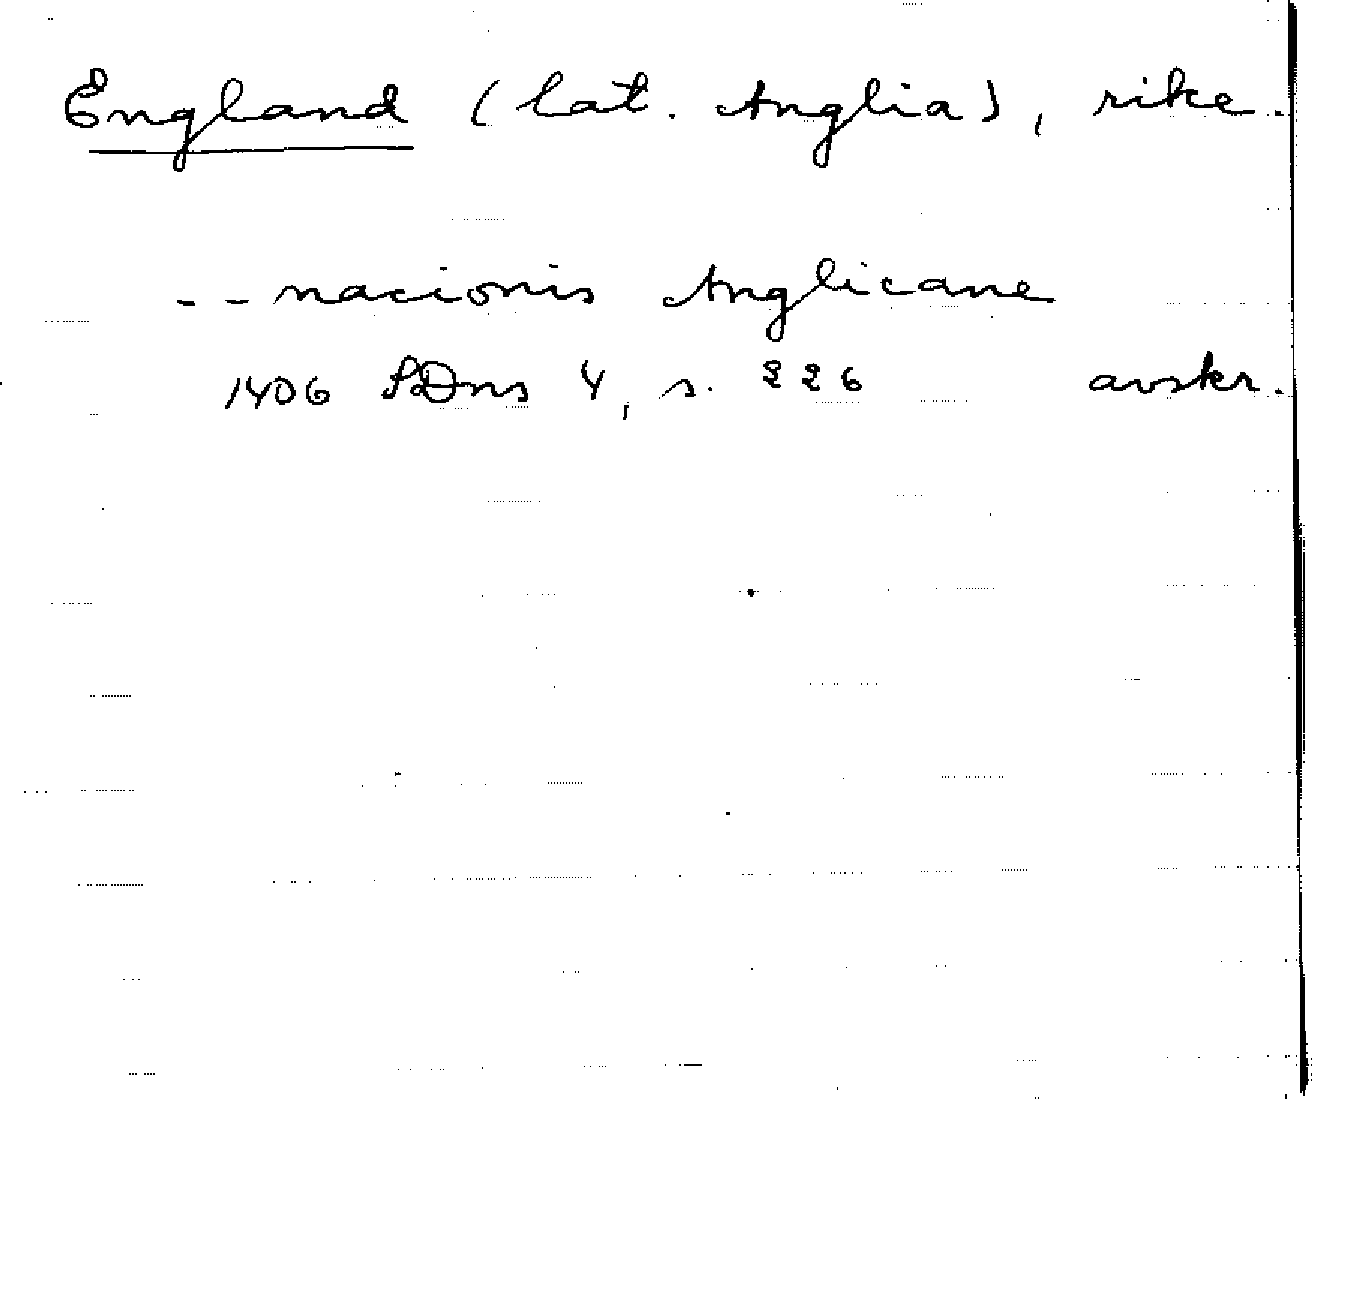 England (lat. Anglia), rike.
- - nacionis Anglicane
1406 SDns 4, s. 226 avskr.